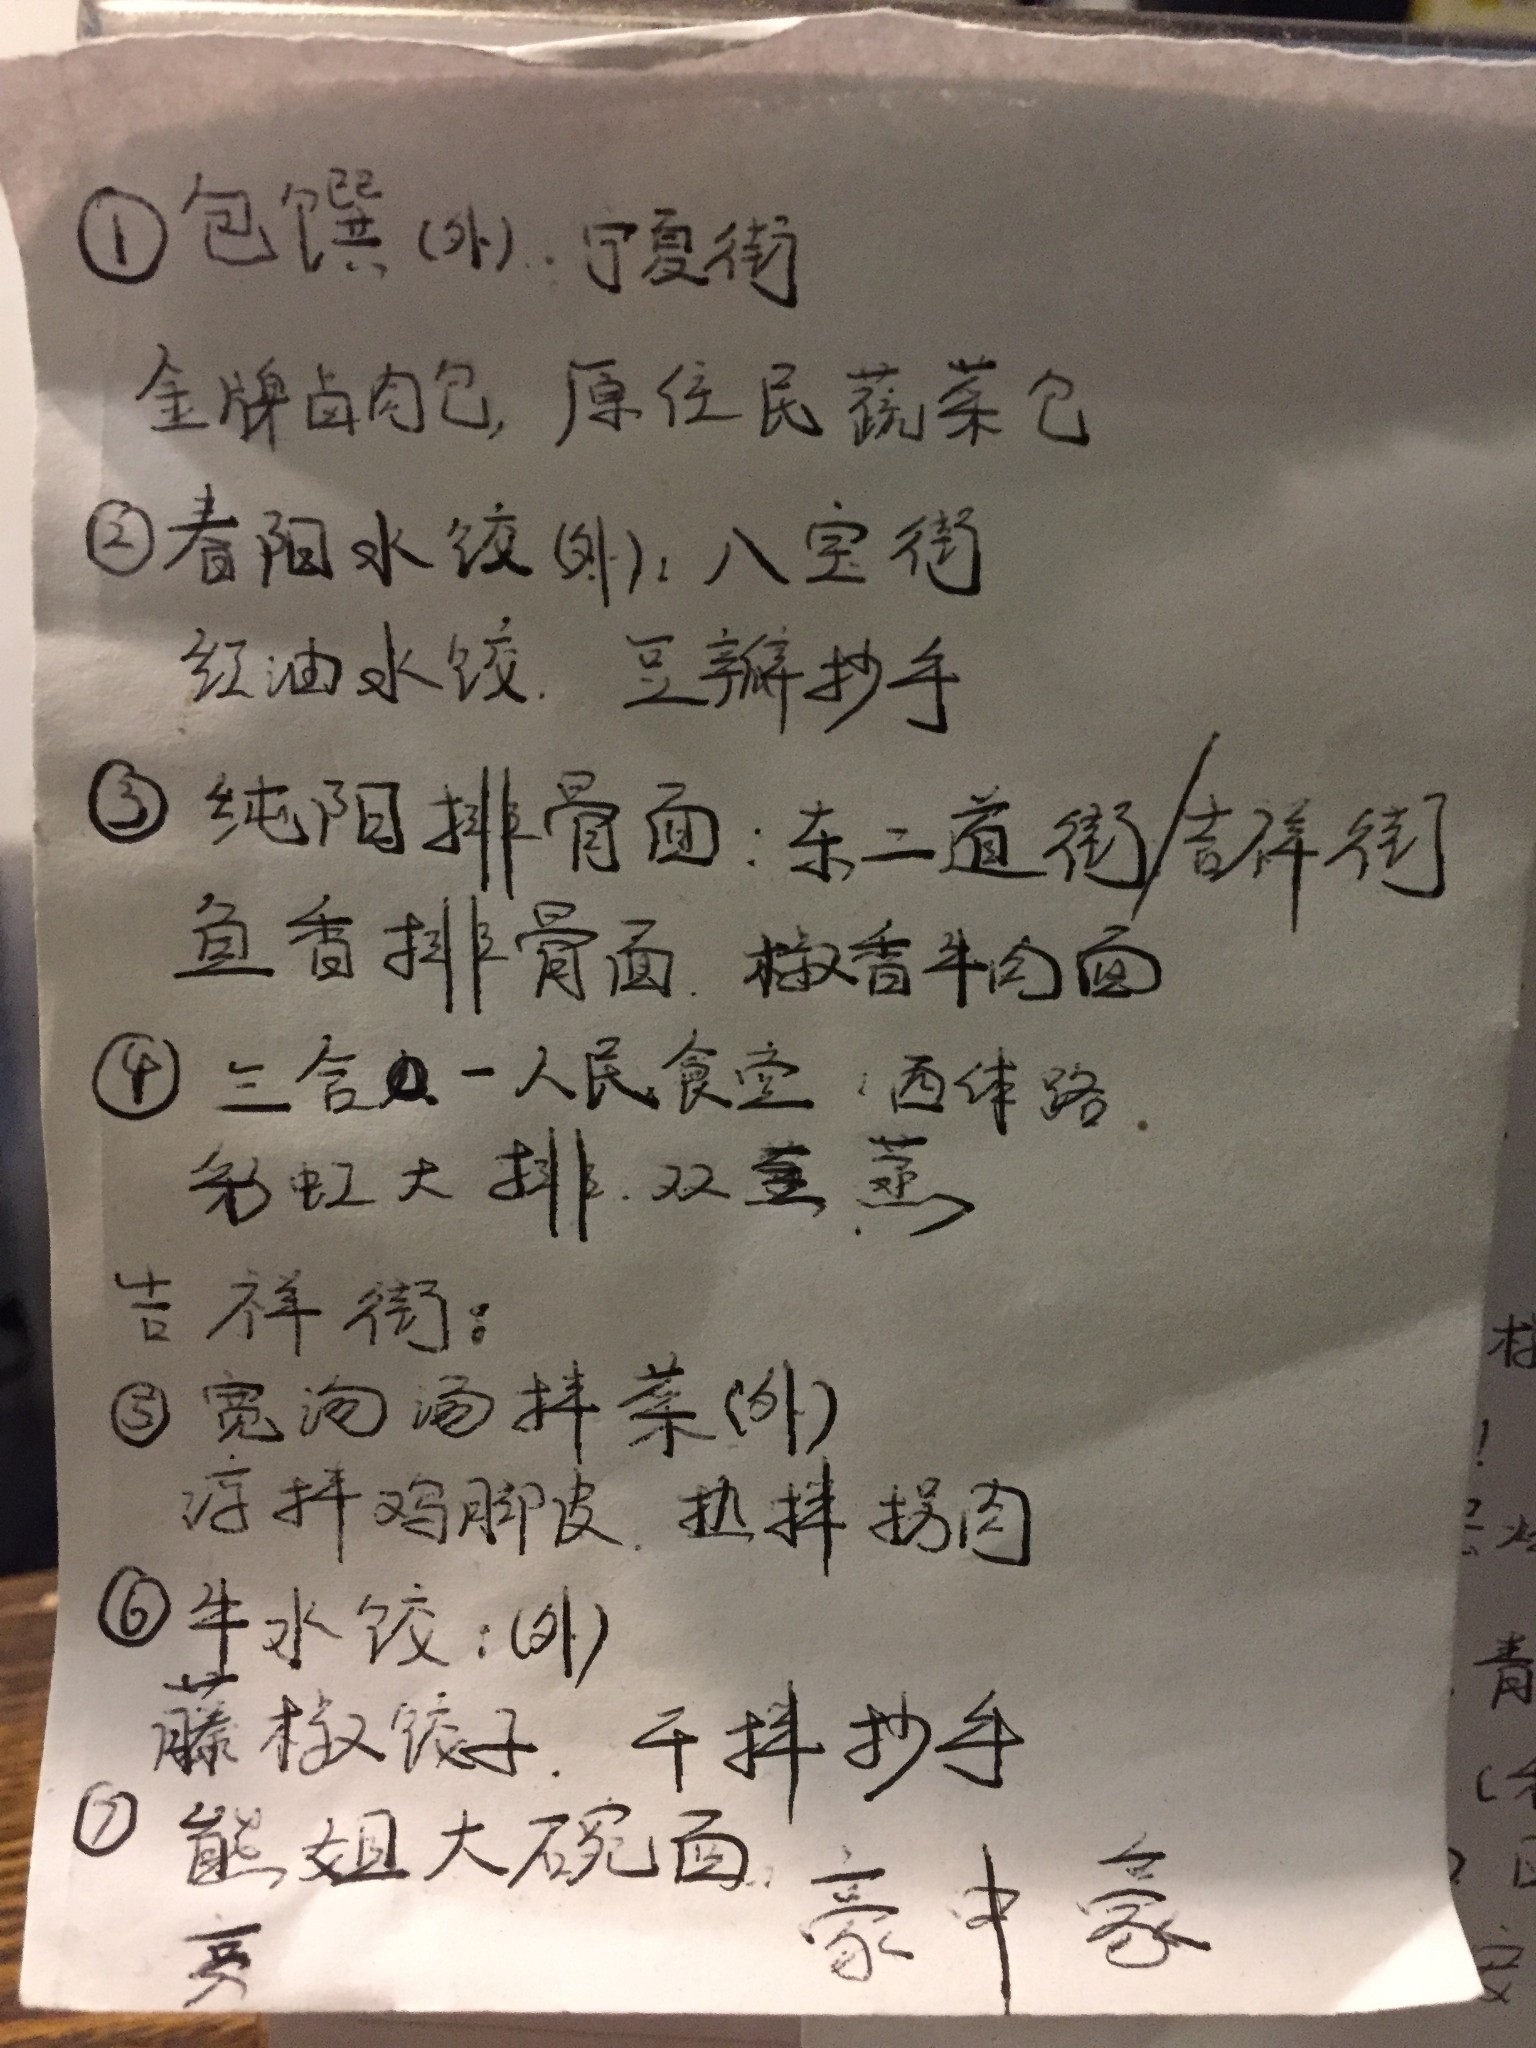 ①包馔(外):宁夏街
金牌卤肉包,原住民蔬菜包
②春阳水饺(外):八宝街
红油水饺.豆瓣抄手
③纯阳排骨面:东二道街/吉祥街
鱼香排骨面.椒香牛肉面
④三合一人民食堂:西体路.
彩虹大排.双蒸
吉祥街:
⑤宽沟汤拌菜(外)
凉拌鸡脚皮.热拌拐肉
⑥牛水饺:(外)
藤椒饺子.干拌抄手
⑦熊姐大碗面
豪中豪
青